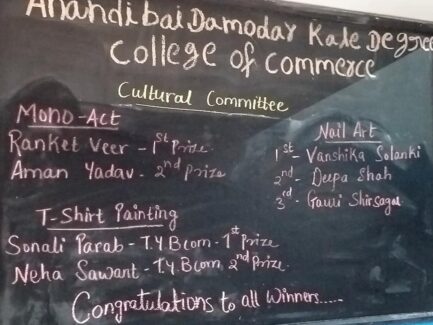 Anandibai Damodar Kale Degree
College of Commerce
Cultural Committee
Mono-Act
Ranket Veer - 1st Prize
Aman Yadav - 2nd Prize
Nail Art
1st - Vanshika Solanki
2nd - Deepa Shah
3rd - Gauri Shirsagar
T-Shirt Painting
Sonali Parab - T.Y Bcom - 1st Prize
Neha Sawant - T.Y. Bcom 2nd Prize.
Congratulations to all Winners.....